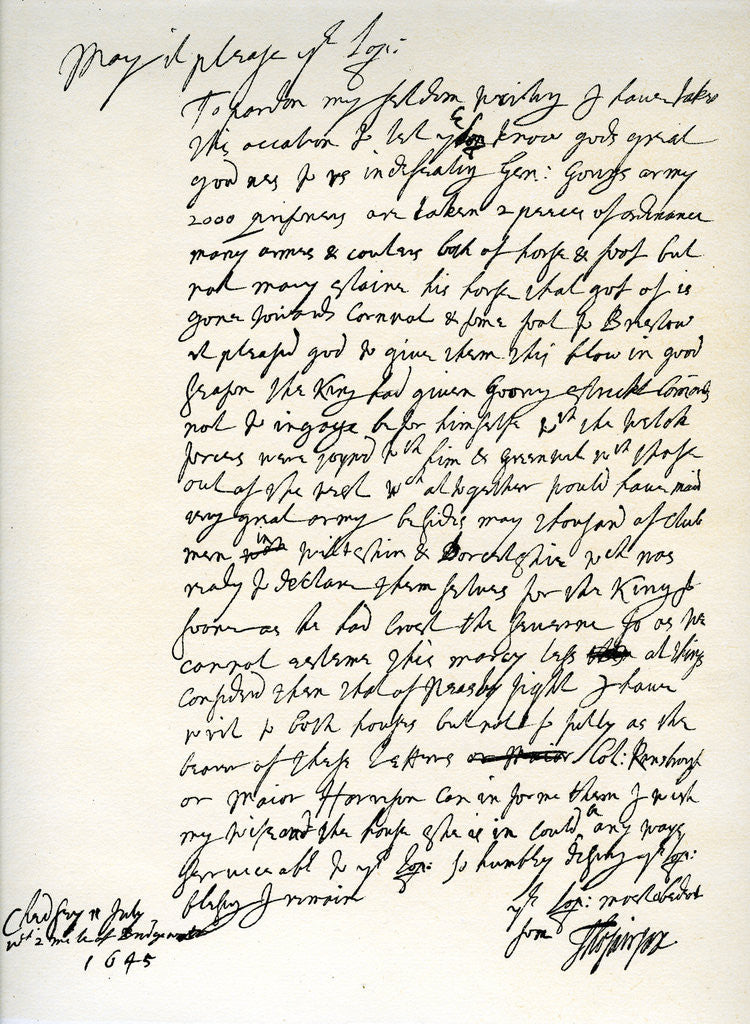 May it please yr Lop:
To pardon my seldom writing I have taken
this occation to let yr Lop know gods great
goodnes to vs in defeating Gen: Gorings army
2000 prisoners are taken 2 peeces of ordinance
many armes & coulers both of horse & foot but
not many slaine his horse that got of is
gone towards Cornwal & some foot to Bristow
it pleased god to give them this blow in good
season the King had given Goring strickt Comands
not to ingage befor himselfe wth the Welch
forces were joyned wth him & greenvil wth those
out of the west wch altogether would have mad
very great army besides many thousand of Club
men in wilteshire & Dorcetshire wch was
ready to declare them selves for the King so
soone as he had crost the Severne so as we
cannot esteeme this mercy less al things
considerd then that of Naseby fight I have
writ to both houses but not so fully as the
bearer of these letters Col: Rensbrough
or Maior Harrison can informe them I wish
my wife and the house she is in could a any ways
serviceabl to yr Lop: so humbly desiring yr Lop:
blesing I remain
yr Lop: most obedent
sone
Tho fairfax
Chedsey 11 July
wt 2 mile of Bridgewater
1645